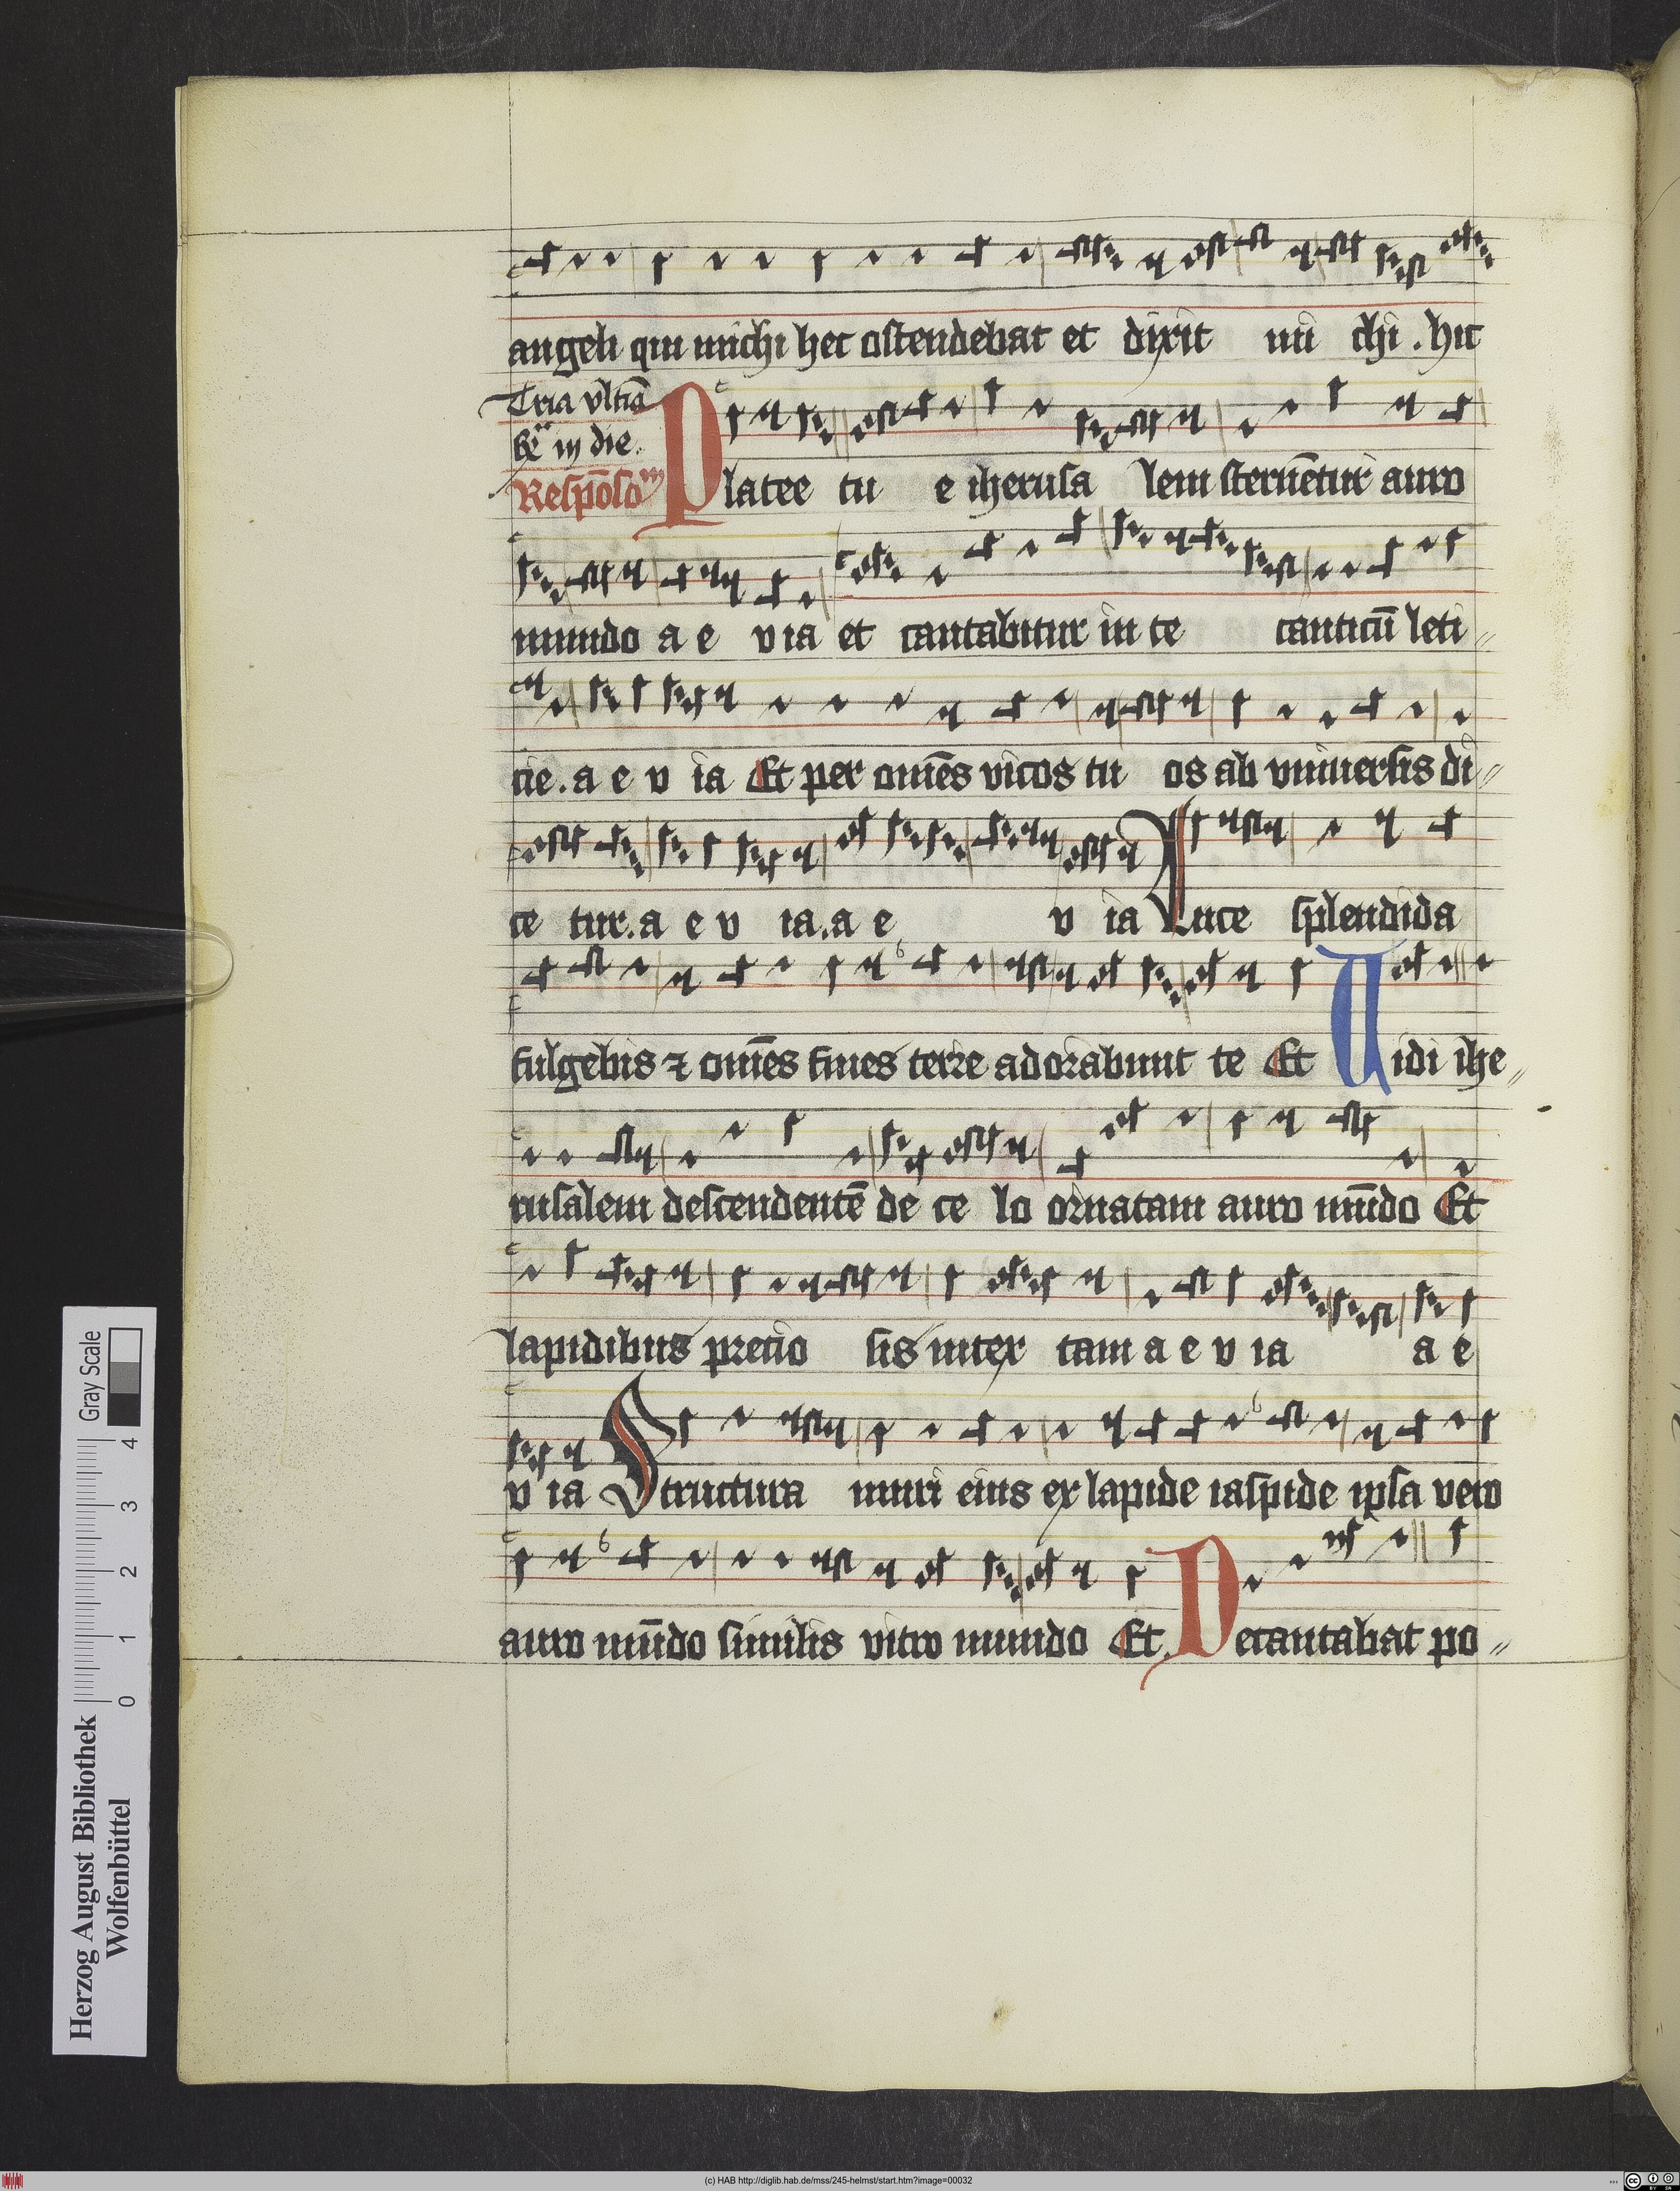 angeli qui michi hec ostendebat et dixit mi chi . hic
Tria vltīa
in die.
Respōso
Platee tu e iherusa lem sternētur auro
mundo a e v ia et cantabitur in te canticū leti//
cie . a e v ia Et per om̄es vicos tu os ab vniuersis di//
ce tur. a e v ia. a e v ia Luce splendida
fulgebis ⁊ om̄es fines terre adorabunt te Et Uidi ihe//
rusalem descendentē de ce lo ornatam auro mūdo Et
lapidibus precio sis intex tam a e v ia a e
v ia Structura muri eius ex lapide iaspide ipsa vero
auro mūdo similis vitro mundo Et. Decantabat po//
Herzog August Bibliothek
Wolfenbüttel
0 1 2 3 4
Gray Scale
(c) HAB http://diglib.hab.de/mss/245-helmst/start.htm?image=00032